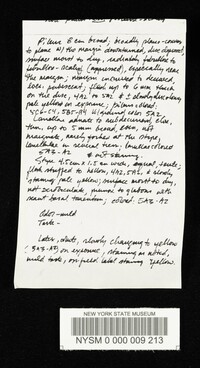 Pileus 8 cm broad, broadly plano-convex
to plane w/ the margin downturned, disc depressed,
surface moist to dry, radially fibrillose to
fibrillose-scaly (appressed), especially near
the margin; margin incurved to decurved,
flesh up to 6 mm thick
on the disc, 4A2 to 5A2 & slowly
pale yellow on exposure; pileus colored:
Lamellae adnate to subdecurrent, close,
thin, up to 5 mm broad, even, not
marginate, rarely forked at the stipe,
lamellulae in several tiers; lamellae colored
5A2-A3 & not staining.
Stipe 4.5 cm x 1.5 cm wide, central, terete,
flesh stuffed to hollow, 4A2, 5A2, & slowly
staining pale yellow; surface moist to dry,
not scrobiculate, pruinose to glabrous with
colored: 5A2-A3
Odor - mild
Taste -
Latex, white, slowly changing to yellow
on exposure, staining as noted,
mild taste, on field label staining yellow.
NEW YORK STATE MUSEUM
NYSM 0 000 009 213